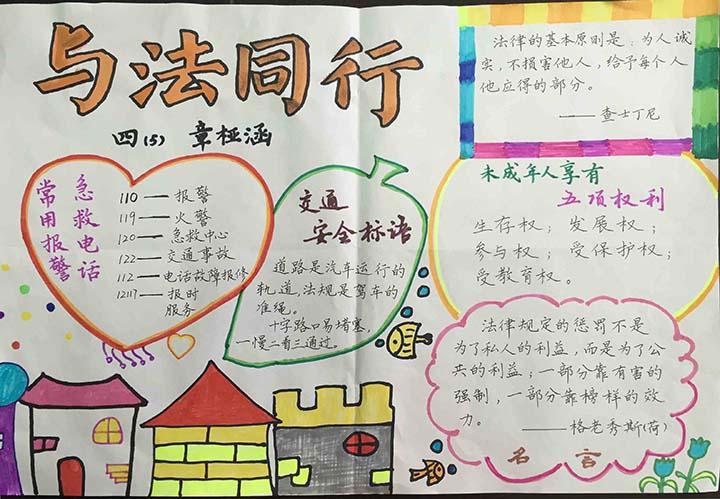 与法同行
四(5) 章桠涵
常用报警
急救电话
110——报警
119——火警
120——急救中心
122——交通事故
112——电话故障报修
12117——报时
服务
交通
安全标语
道路是汽车运行的
轨道,法规是驾车的
准绳。
十字路口易堵塞,
一慢二看三通过。
法律的基本原则是:为人诚
实,不损害他人,给予每个人
他应得的部分。
——查士丁尼
未成年人享有
五项权利
生存权;发展权;
参与权;受保护权;
受教育权。
法律规定的惩罚不是
为了私人的利益,而是为了公
共的利益;一部分靠有害的
强制,一部分靠榜样的效
力。
——格老秀斯(荷)
名言